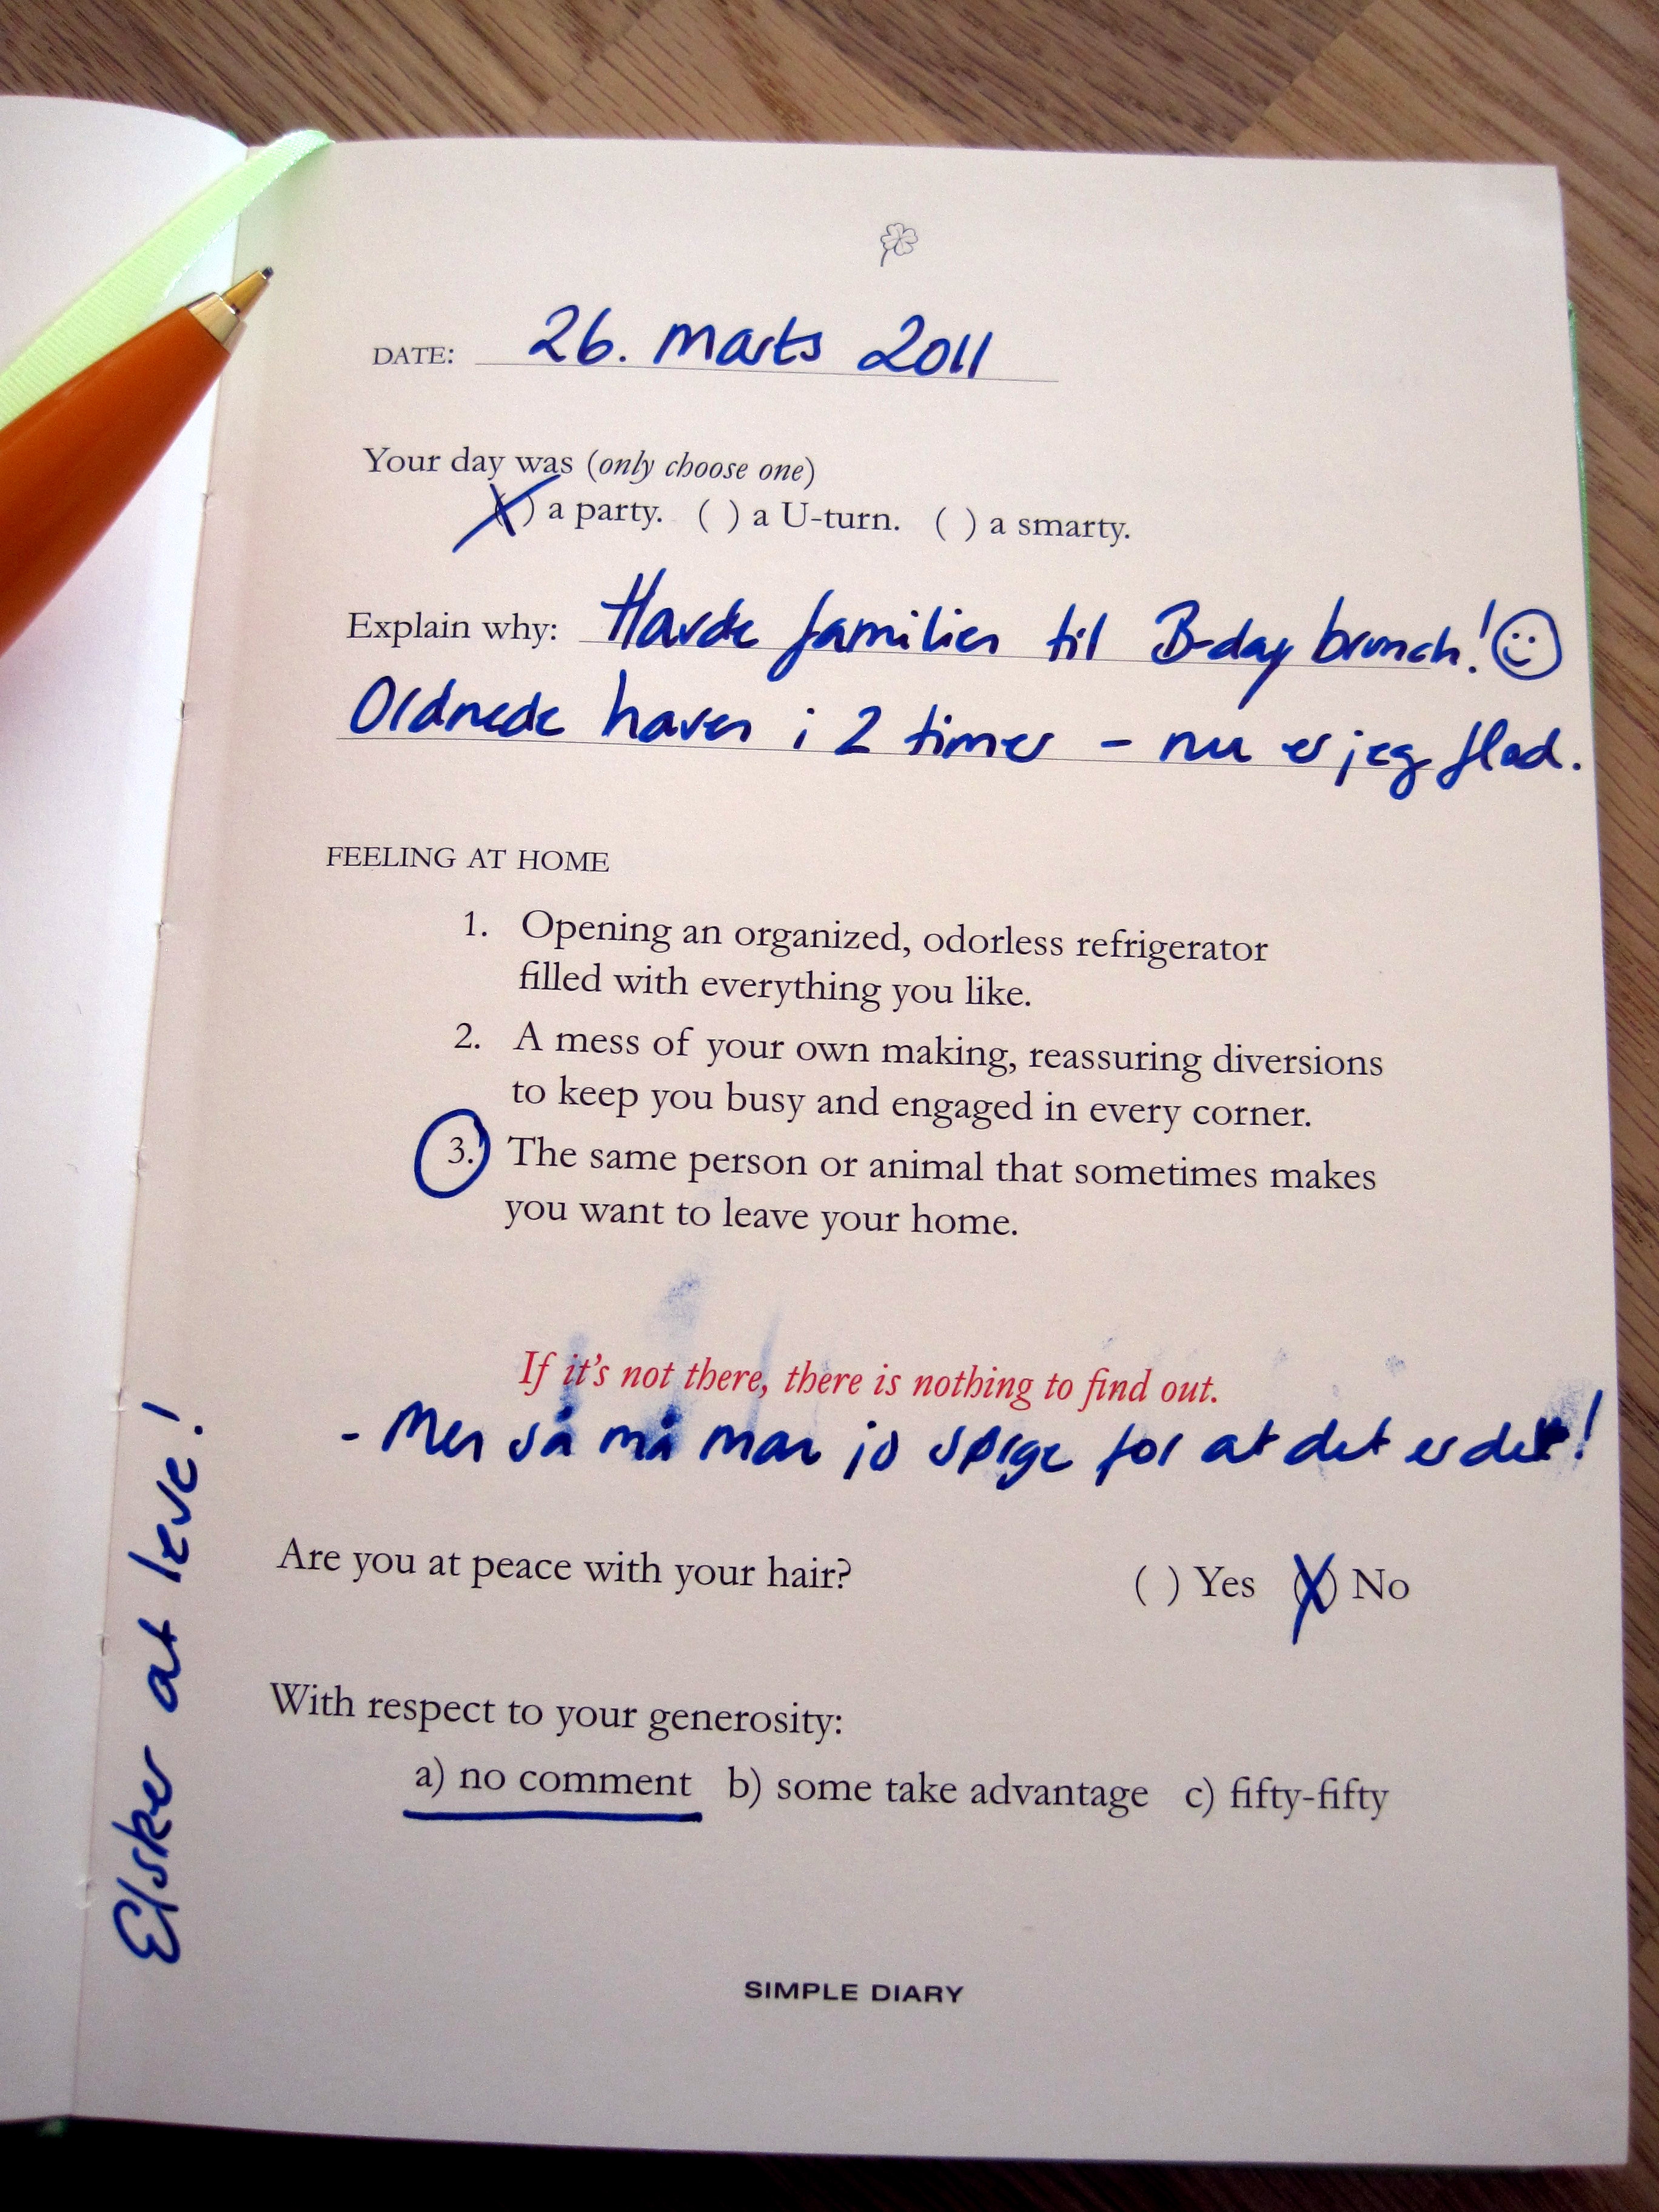 DATE: 26. Marts 2011
Your day was (only choose one)
(X) a party. ( ) a U-turn. ( ) a smarty.
Explain why: Havde familien til B-day brunch! ☺
Ordnede haven i 2 timer - nu er jeg flad.
FEELING AT HOME
1. Opening an organized, odorless refrigerator
filled with everything you like.
2. A mess of your own making, reassuring diversions
to keep you busy and engaged in every corner.
3. The same person or animal that sometimes makes
you want to leave your home.
If it's not there, there is nothing to find out.
- Men så må man jo sørge for at det er det!
Are you at peace with your hair? ( ) Yes (X) No
With respect to your generosity:
a) no comment b) some take advantage c) fifty-fifty
Elsker at leve!
SIMPLE DIARY